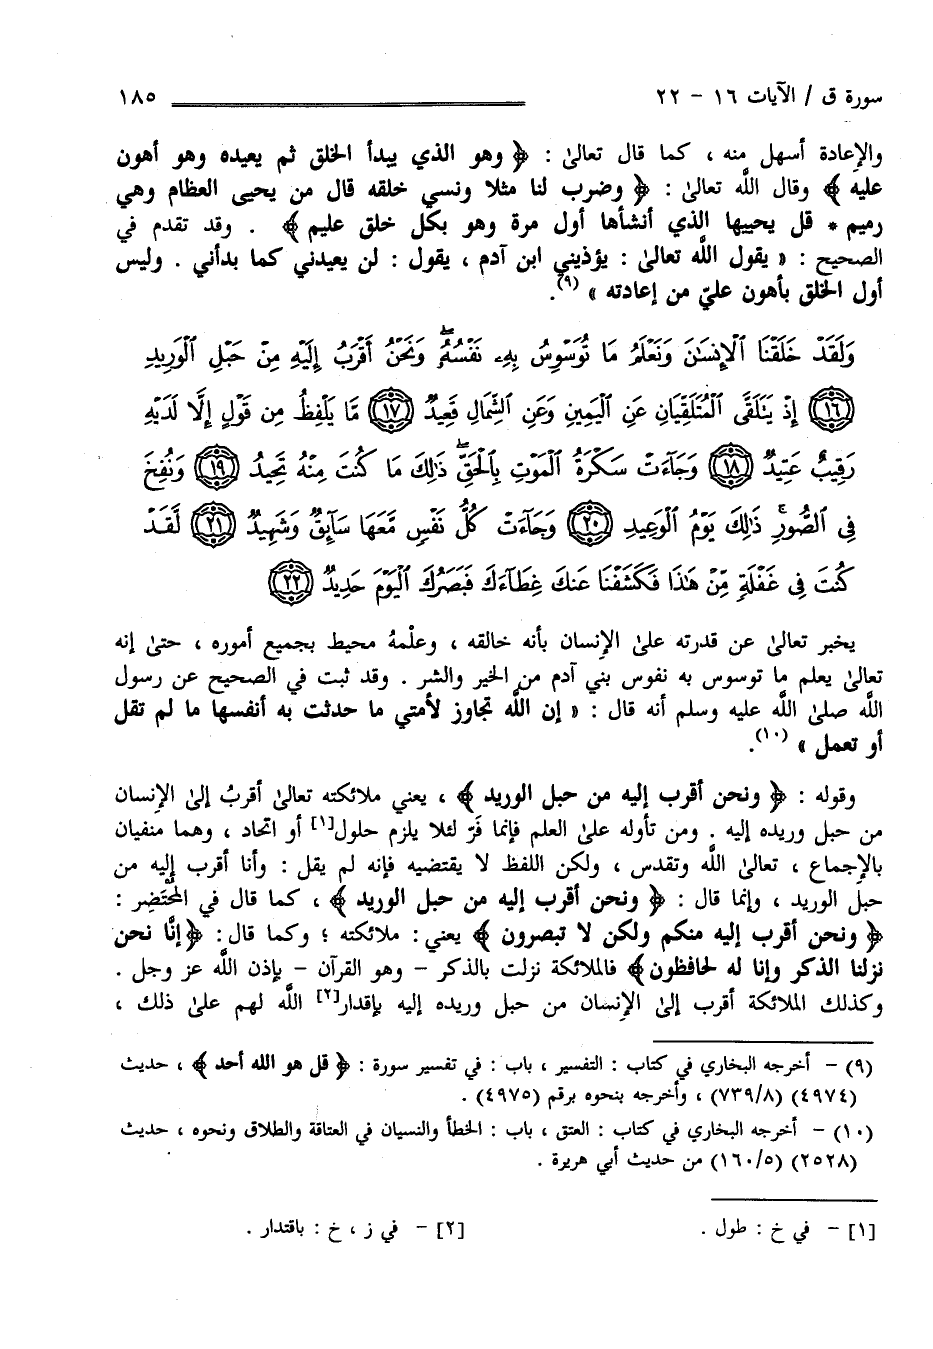 سورة ق / الآيات ١٦ - ٢٢ ١٨٥
والإعادة أسهل منه ، كما قال تعالىٰ : ﴿ وهو الذي يبدأ الخلق ثم يعيده وهو أهون
عليه ﴾ وقال اللَّه تعالىٰ : ﴿ وضرب لنا مثلا ونسي خلقه قال من يحيى العظام وهي
رميم * قل يحييها الذي أنشأها أول مرة وهو بكل خلق عليم ﴾ . وقد تقدم في
الصحيح : « يقول اللَّه تعالىٰ : يؤذيني ابن آدم ، يقول : لن يعيدني كما بدأني . وليس
أول الخلق بأهون عليّ من إعادته » (٩).
وَلَقَدْ خَلَقْنَا ٱلْإِنسَٰنَ وَنَعْلَمُ مَا تُوَسْوِسُ بِهِۦ نَفْسُهُۥۖ وَنَحْنُ أَقْرَبُ إِلَيْهِ مِنْ حَبْلِ ٱلْوَرِيدِ
﴿١٦﴾ إِذْ يَتَلَقَّى ٱلْمُتَلَقِّيَانِ عَنِ ٱلْيَمِينِ وَعَنِ ٱلشِّمَالِ قَعِيدٌ ﴿١٧﴾ مَّا يَلْفِظُ مِن قَوْلٍ إِلَّا لَدَيْهِ
رَقِيبٌ عَتِيدٌ ﴿١٨﴾ وَجَآءَتْ سَكْرَةُ ٱلْمَوْتِ بِٱلْحَقِّۖ ذَٰلِكَ مَا كُنتَ مِنْهُ تَحِيدُ ﴿١٩﴾ وَنُفِخَ
فِى ٱلصُّورِۚ ذَٰلِكَ يَوْمُ ٱلْوَعِيدِ ﴿٢٠﴾ وَجَآءَتْ كُلُّ نَفْسٍ مَّعَهَا سَآئِقٌ وَشَهِيدٌ ﴿٢١﴾ لَّقَدْ
كُنتَ فِى غَفْلَةٍ مِّنْ هَٰذَا فَكَشَفْنَا عَنكَ غِطَآءَكَ فَبَصَرُكَ ٱلْيَوْمَ حَدِيدٌ ﴿٢٢﴾
يخبر تعالىٰ عن قدرته علىٰ الإنسان بأنه خالقه ، وعلْمهُ محيط بجميع أموره ، حتىٰ إنه
تعالىٰ يعلم ما توسوس به نفوس بني آدم من الخير والشر . وقد ثبت في الصحيح عن رسول
اللَّه صلىٰ اللَّه عليه وسلم أنه قال : « إن اللَّه تجاوز لأمتي ما حدثت به أنفسها ما لم تقل
أو تعمل » (١٠).
وقوله : ﴿ ونحن أقرب إليه من حبل الوريد ﴾ ، يعني ملائكته تعالىٰ أقربُ إلىٰ الإنسان
من حبل وريده إليه . ومن تأوله علىٰ العلم فإنما فَرّ لئلا يلزم حلول[١] أو اتحاد ، وهما منفيان
بالإجماع ، تعالىٰ اللَّه وتقدس ، ولكن اللفظ لا يقتضيه فإنه لم يقل : وأنا أقرب إليه من
حبل الوريد ، وإنما قال : ﴿ ونحن أقرب إليه من حبل الوريد ﴾ ، كما قال في المُحْتَضِر :
﴿ ونحن أقرب إليه منكم ولكن لا تبصرون ﴾ يعني: ملائكته ؛ وكما قال: ﴿إنَّا نحن
نزلنا الذكر وإنا له لحافظون﴾ فالملائكة نزلت بالذكر – وهو القرآن – بإذن اللَّه عز وجل .
وكذلك الملائكة أقرب إلىٰ الإنسان من حبل وريده إليه بإقدار[٢] اللَّه لهم علىٰ ذلك ،
(٩) – أخرجه البخاري في كتاب : التفسير ، باب : في تفسير سورة : ﴿ قل هو الله أحد ﴾ ، حديث
(٤٩٧٤) (٧٣٩/٨) ، وأخرجه بنحوه برقم (٤٩٧٥) .
(١٠) – أخرجه البخاري في كتاب : العتق ، باب : الخطأ والنسيان في العتاقة والطلاق ونحوه ، حديث
(٢٥٢٨) (١٦٠/٥) من حديث أبي هريرة .
[١] – في خ : طول . [٢] – في ز ، خ : باقتدار .